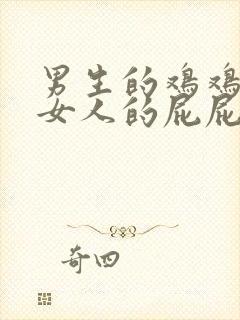 男生的鸡鸡
女人的屁屁
奇四